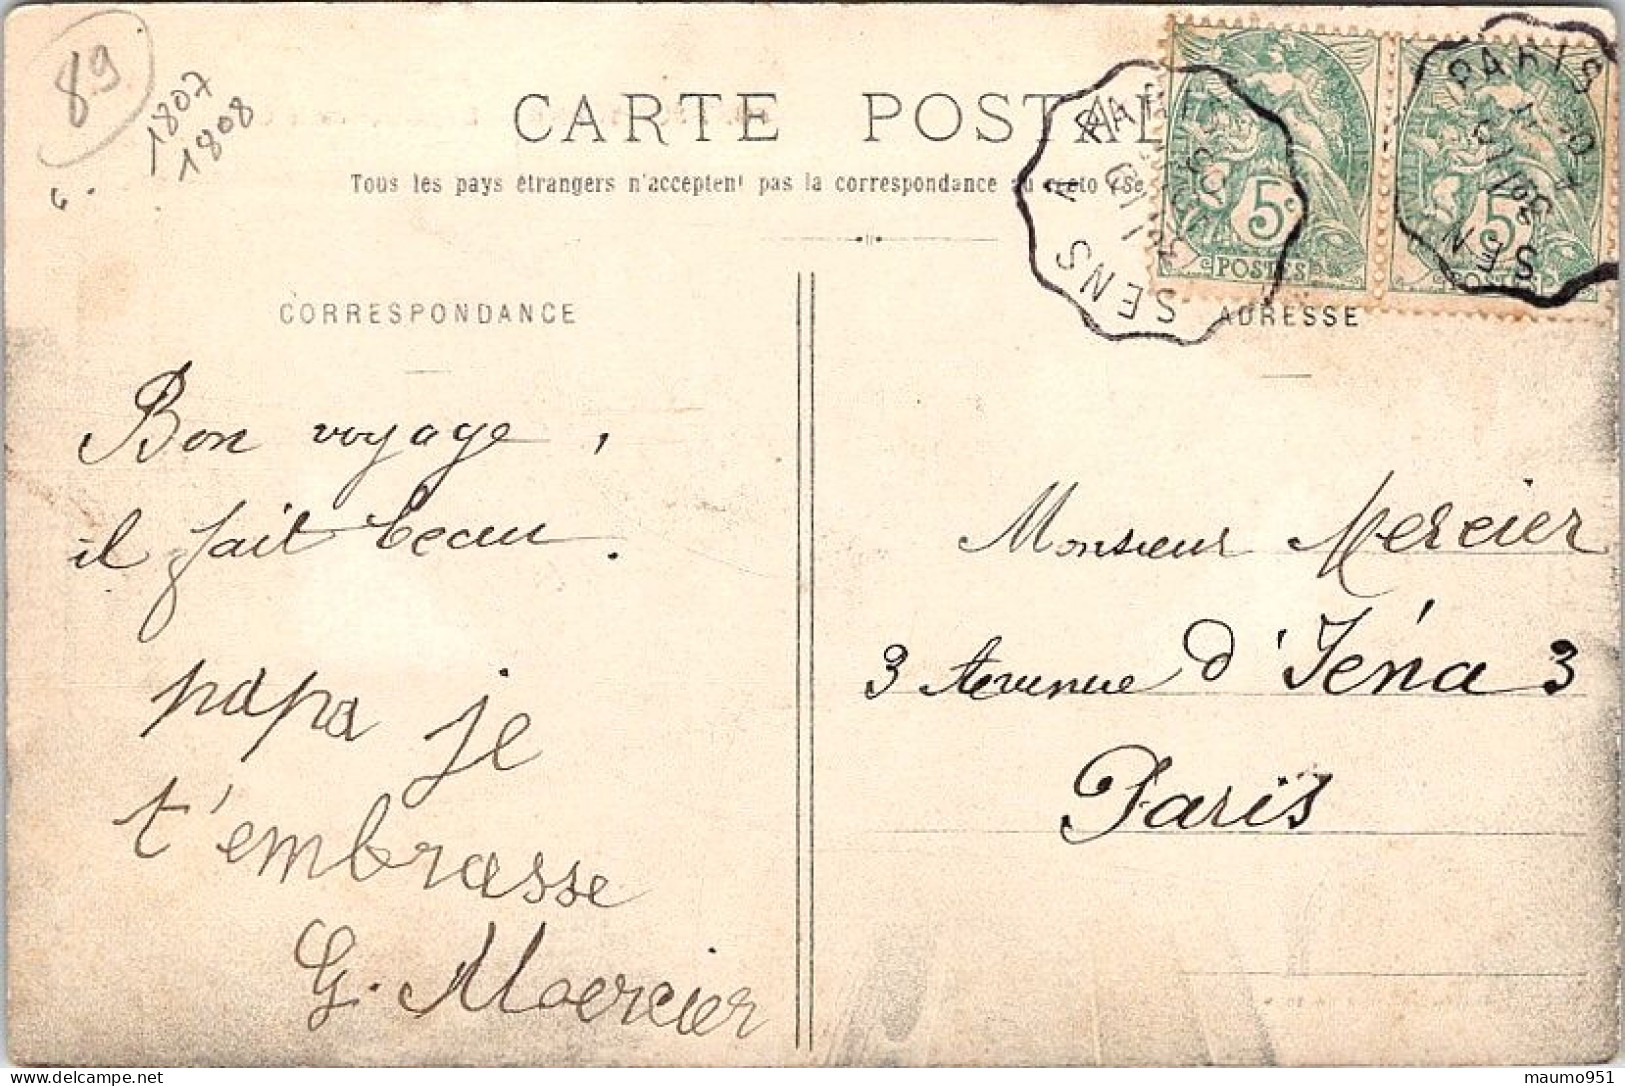 89
1807
1808
CARTE POSTAL
Tous les pays étrangers n'acceptent pas la correspondance au
5c
POSTES
5
PARIS
SENS
SENS A
CORRESPONDANCE
ADRESSE
Bon voyage,
il fait beau.
papa je
t'embrasse
G. Mercier
Monsieur Mercier
3 Avenue d'Iéna 3
Paris
Delcampe.net
maumo951